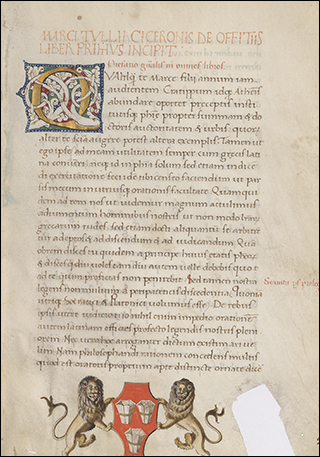 MARCI TVLLII CICERONIS DE OFFITIIS
LIBER PRIMVS INCIPIT
annum iam
audientem Cratippum idq; Athenis
abundare oportet preceptis insti
tutisq; phie propter summam & do
ctoris auctoritatem & urbis: quor
alter te scia augere potest altera exemplis: Tamen ut
ipse ad meam utilitatem semper cum grecis lati
na coniunxi neq; id in phia solum sed etiam in dice
di exercitatione feci idem tibi censeo faciendum ut par
sis in utriusq; orationis facultate. Quam qui
dem ad rem nos ut uidemur magnum attulimus
adiumentum hominibus nostris ut non modo
grecarum rudes sed etiam docti aliquantu se arbitre
tur adeptos & ad discendum & ad iudicandum. Qua
obrem disces tu quidem a principe huius etatis phor
& disces q diu uoles tam diu autem uelle debebis quo
ad te quantum proficias non penitebit. Sed tamen nostra
legens non multum a peripateticis discedentia. Quonia
utriq; & Platonici uolumus esse. De rebus
ipsis utere tuo iudicio nihil enim impedio oratione
autem latinam efficies profecto legendis nostris pleni
orem. Nec uero hoc arroganter dictum existimari ue
lim. Nam philosophandi rationem concedens multis
quod est oratoris proprium apte distincte ornate dice